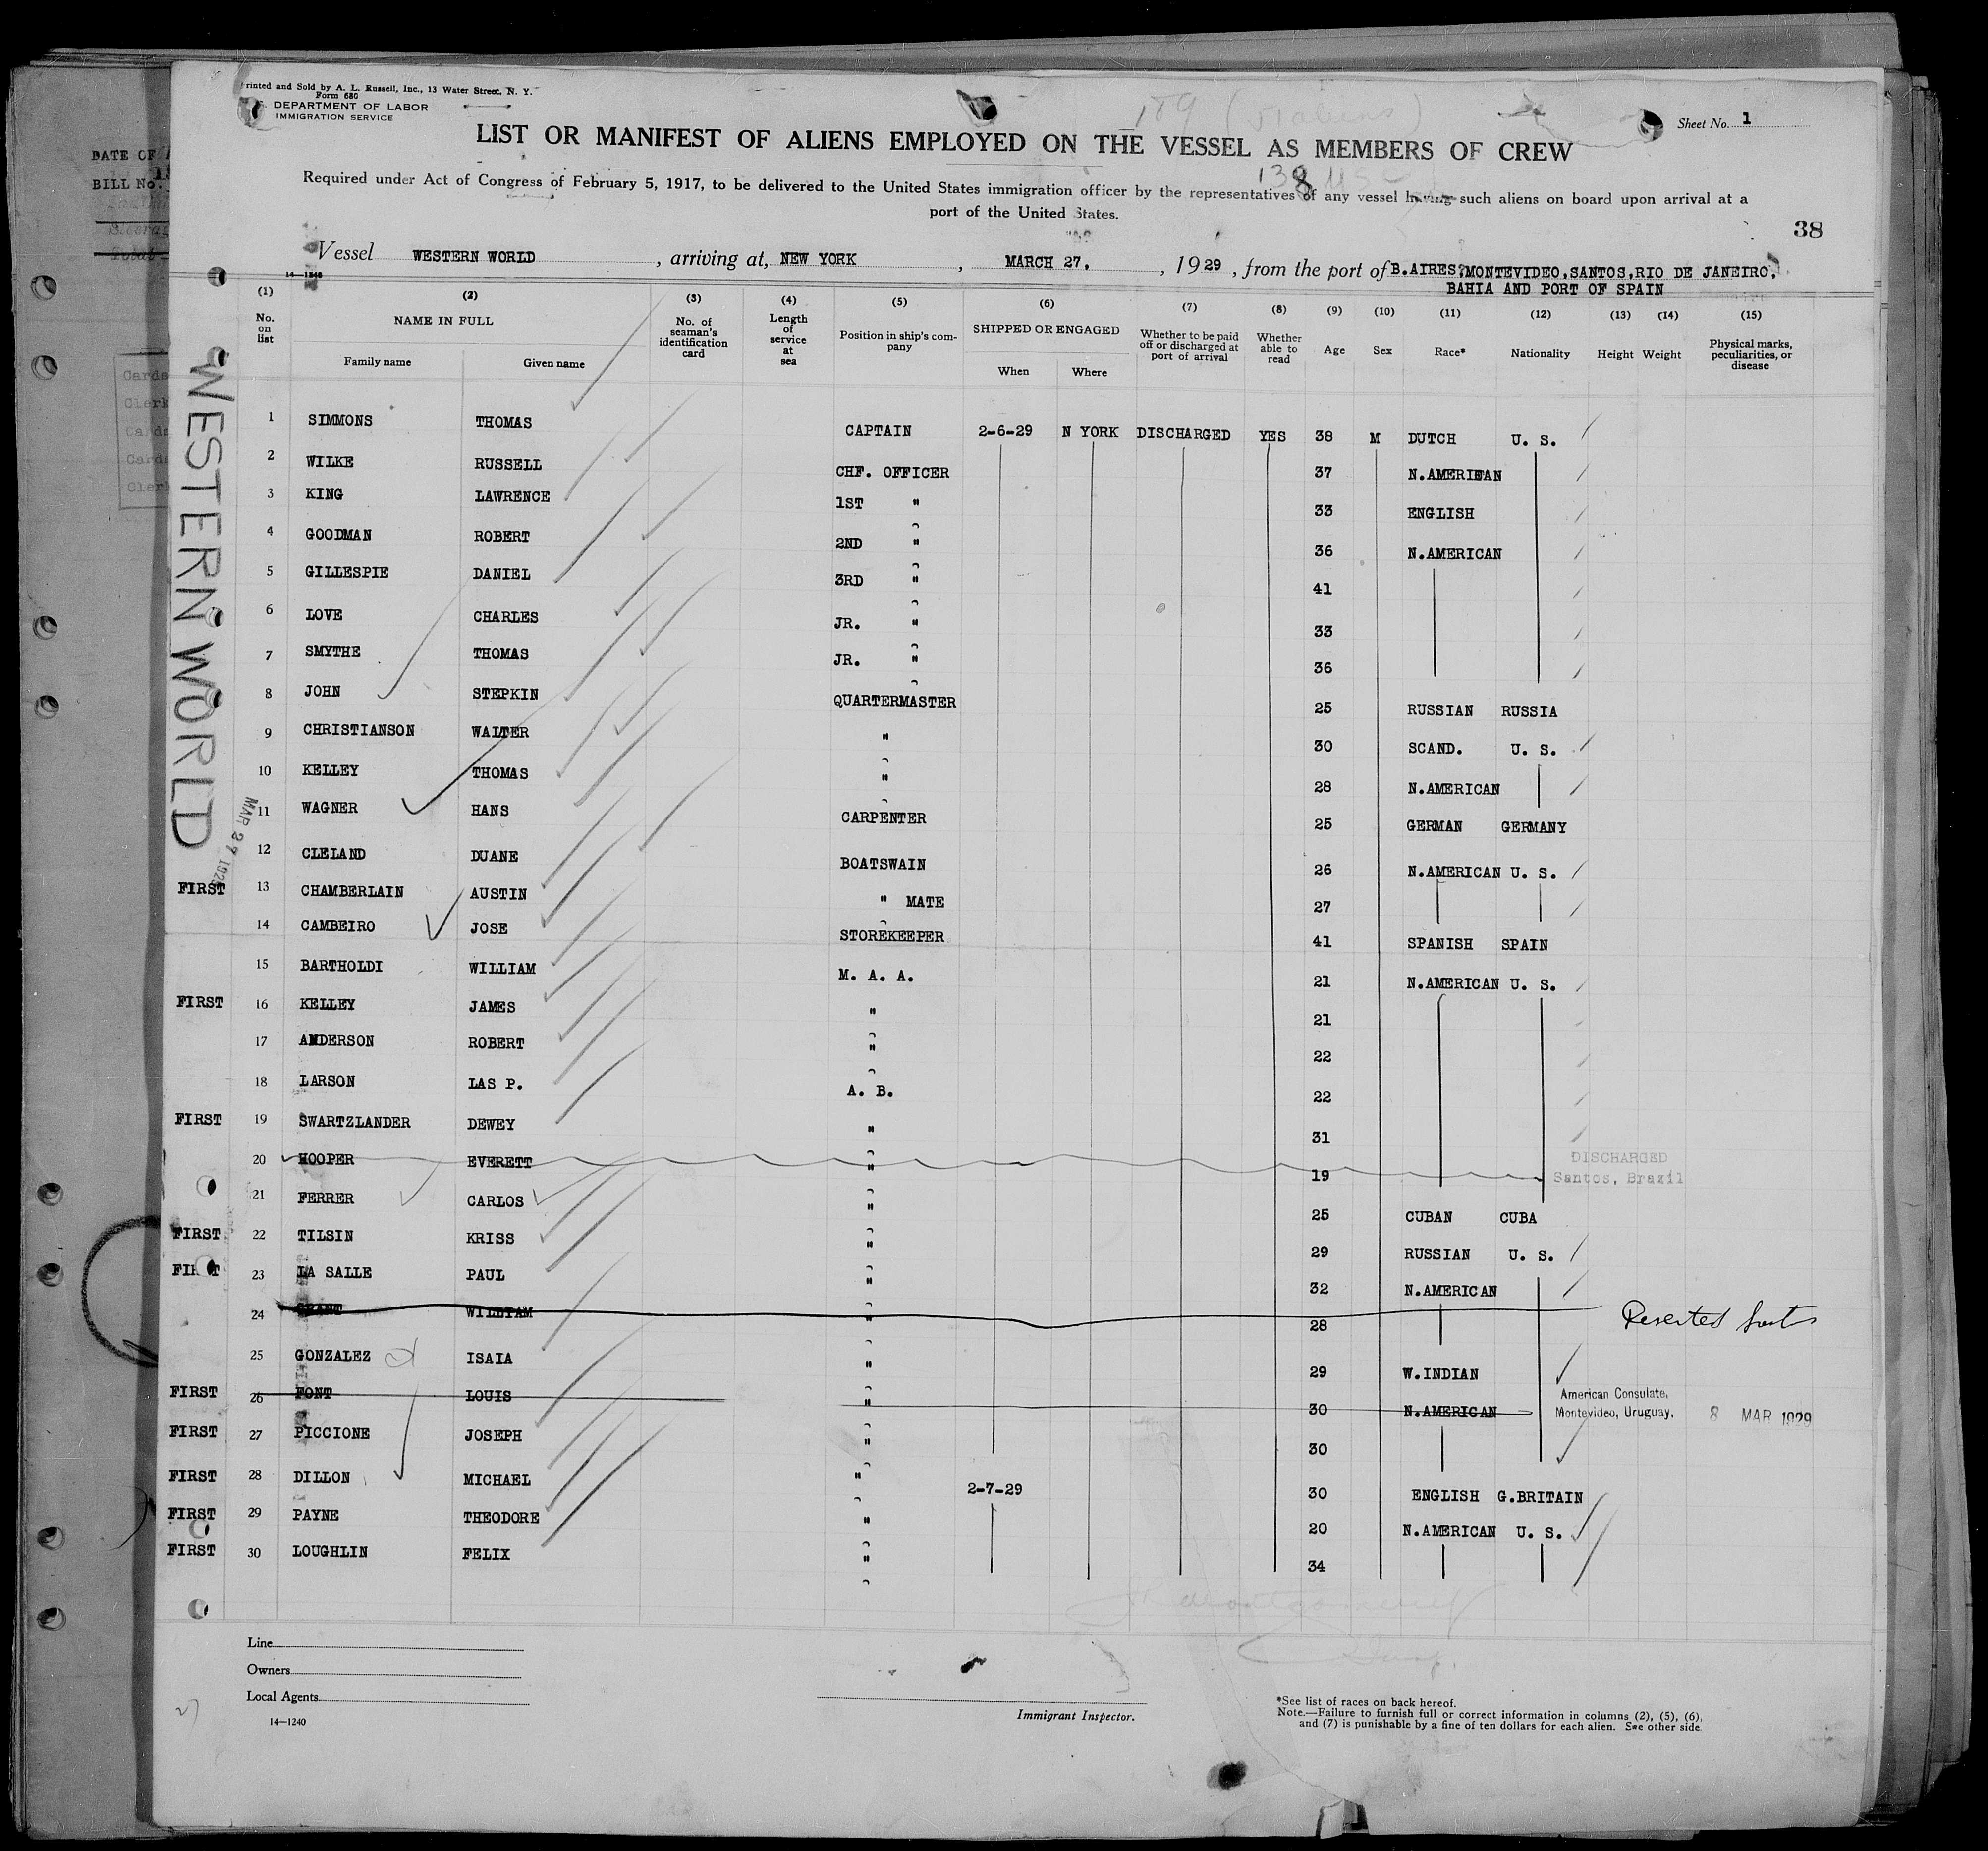 Printed and Sold by A. L. Russell, Inc., 13 Water Street, N. Y.
Form 680
DEPARTMENT OF LABOR
IMMIGRATION SERVICE
Sheet No. 1
LIST OR MANIFEST OF ALIENS EMPLOYED ON THE VESSEL AS MEMBERS OF CREW
Required under Act of Congress of February 5, 1917, to be delivered to the United States immigration officer by the representatives of any vessel having such aliens on board upon arrival at a
port of the United States.
38
Vessel WESTERN WORLD, arriving at, NEW YORK, MARCH 27, 1929, from the port of B.AIRES, MONTEVIDEO, SANTOS, RIO DE JANEIRO,
BAHIA AND PORT OF SPAIN
(1) (2) (3) (4) (5) (6) (7) (8) (9) (10) (11) (12) (13) (14) (15)
No. on list NAME IN FULL Family name Given name No. of seaman's identification card Length of service at sea Position in ship's company SHIPPED OR ENGAGED When Where Whether to be paid off or discharged at port of arrival Whether able to read Age Sex Race* Nationality Height Weight Physical marks, peculiarities, or disease
WESTERN WORLD
MAR 27 1929
1 SIMMONS THOMAS CAPTAIN 2-6-29 N YORK DISCHARGED YES 38 M DUTCH U. S.
2 WILKE RUSSELL CHF. OFFICER 37 N.AMERICAN
3 KING LAWRENCE 1ST " 33 ENGLISH
4 GOODMAN ROBERT 2ND " 36 N.AMERICAN
5 GILLESPIE DANIEL 3RD " 41
6 LOVE CHARLES JR. " 33
7 SMYTHE THOMAS JR. " 36
8 JOHN STEPKIN QUARTERMASTER 25 RUSSIAN RUSSIA
9 CHRISTIANSON WALTER " 30 SCAND. U. S.
10 KELLEY THOMAS " 28 N.AMERICAN
11 WAGNER HANS CARPENTER 25 GERMAN GERMANY
12 CLELAND DUANE BOATSWAIN 26 N.AMERICAN U. S.
FIRST 13 CHAMBERLAIN AUSTIN " MATE 27
14 CAMBEIRO JOSE STOREKEEPER 41 SPANISH SPAIN
15 BARTHOLDI WILLIAM M. A. A. 21 N.AMERICAN U. S.
FIRST 16 KELLEY JAMES " 21
17 ANDERSON ROBERT " 22
18 LARSON LAS P. A. B. 22
FIRST 19 SWARTZLANDER DEWEY " 31
20 HOOPER EVERETT " 19 DISCHARGED
Santos, Brazil
21 FERRER CARLOS " 25 CUBAN CUBA
FIRST 22 TILSIN KRISS " 29 RUSSIAN U. S.
FIRST 23 LA SALLE PAUL " 32 N.AMERICAN
24 GRANT WILLIAM " 28 Deserted
25 GONZALEZ ISAIA " 29 W.INDIAN
FIRST 26 FONT LOUIS " 30 N.AMERICAN American Consulate,
Montevideo, Uruguay. 8 MAR 1929
FIRST 27 PICCIONE JOSEPH " 30
FIRST 28 DILLON MICHAEL " 2-7-29 30 ENGLISH G.BRITAIN
FIRST 29 PAYNE THEODORE " 20 N.AMERICAN U. S.
FIRST 30 LOUGHLIN FELIX " 34
Line
Owners
Local Agents
14—1240
Immigrant Inspector.
*See list of races on back hereof.
Note.—Failure to furnish full or correct information in columns (2), (5), (6),
and (7) is punishable by a fine of ten dollars for each alien. See other side.